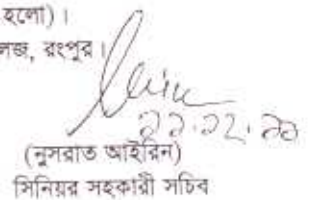 হলো)।
লেজ, রংপুর।
২১.১২.১১
(নুসরাত আইরিন)
সিনিয়র সহকারী সচিব